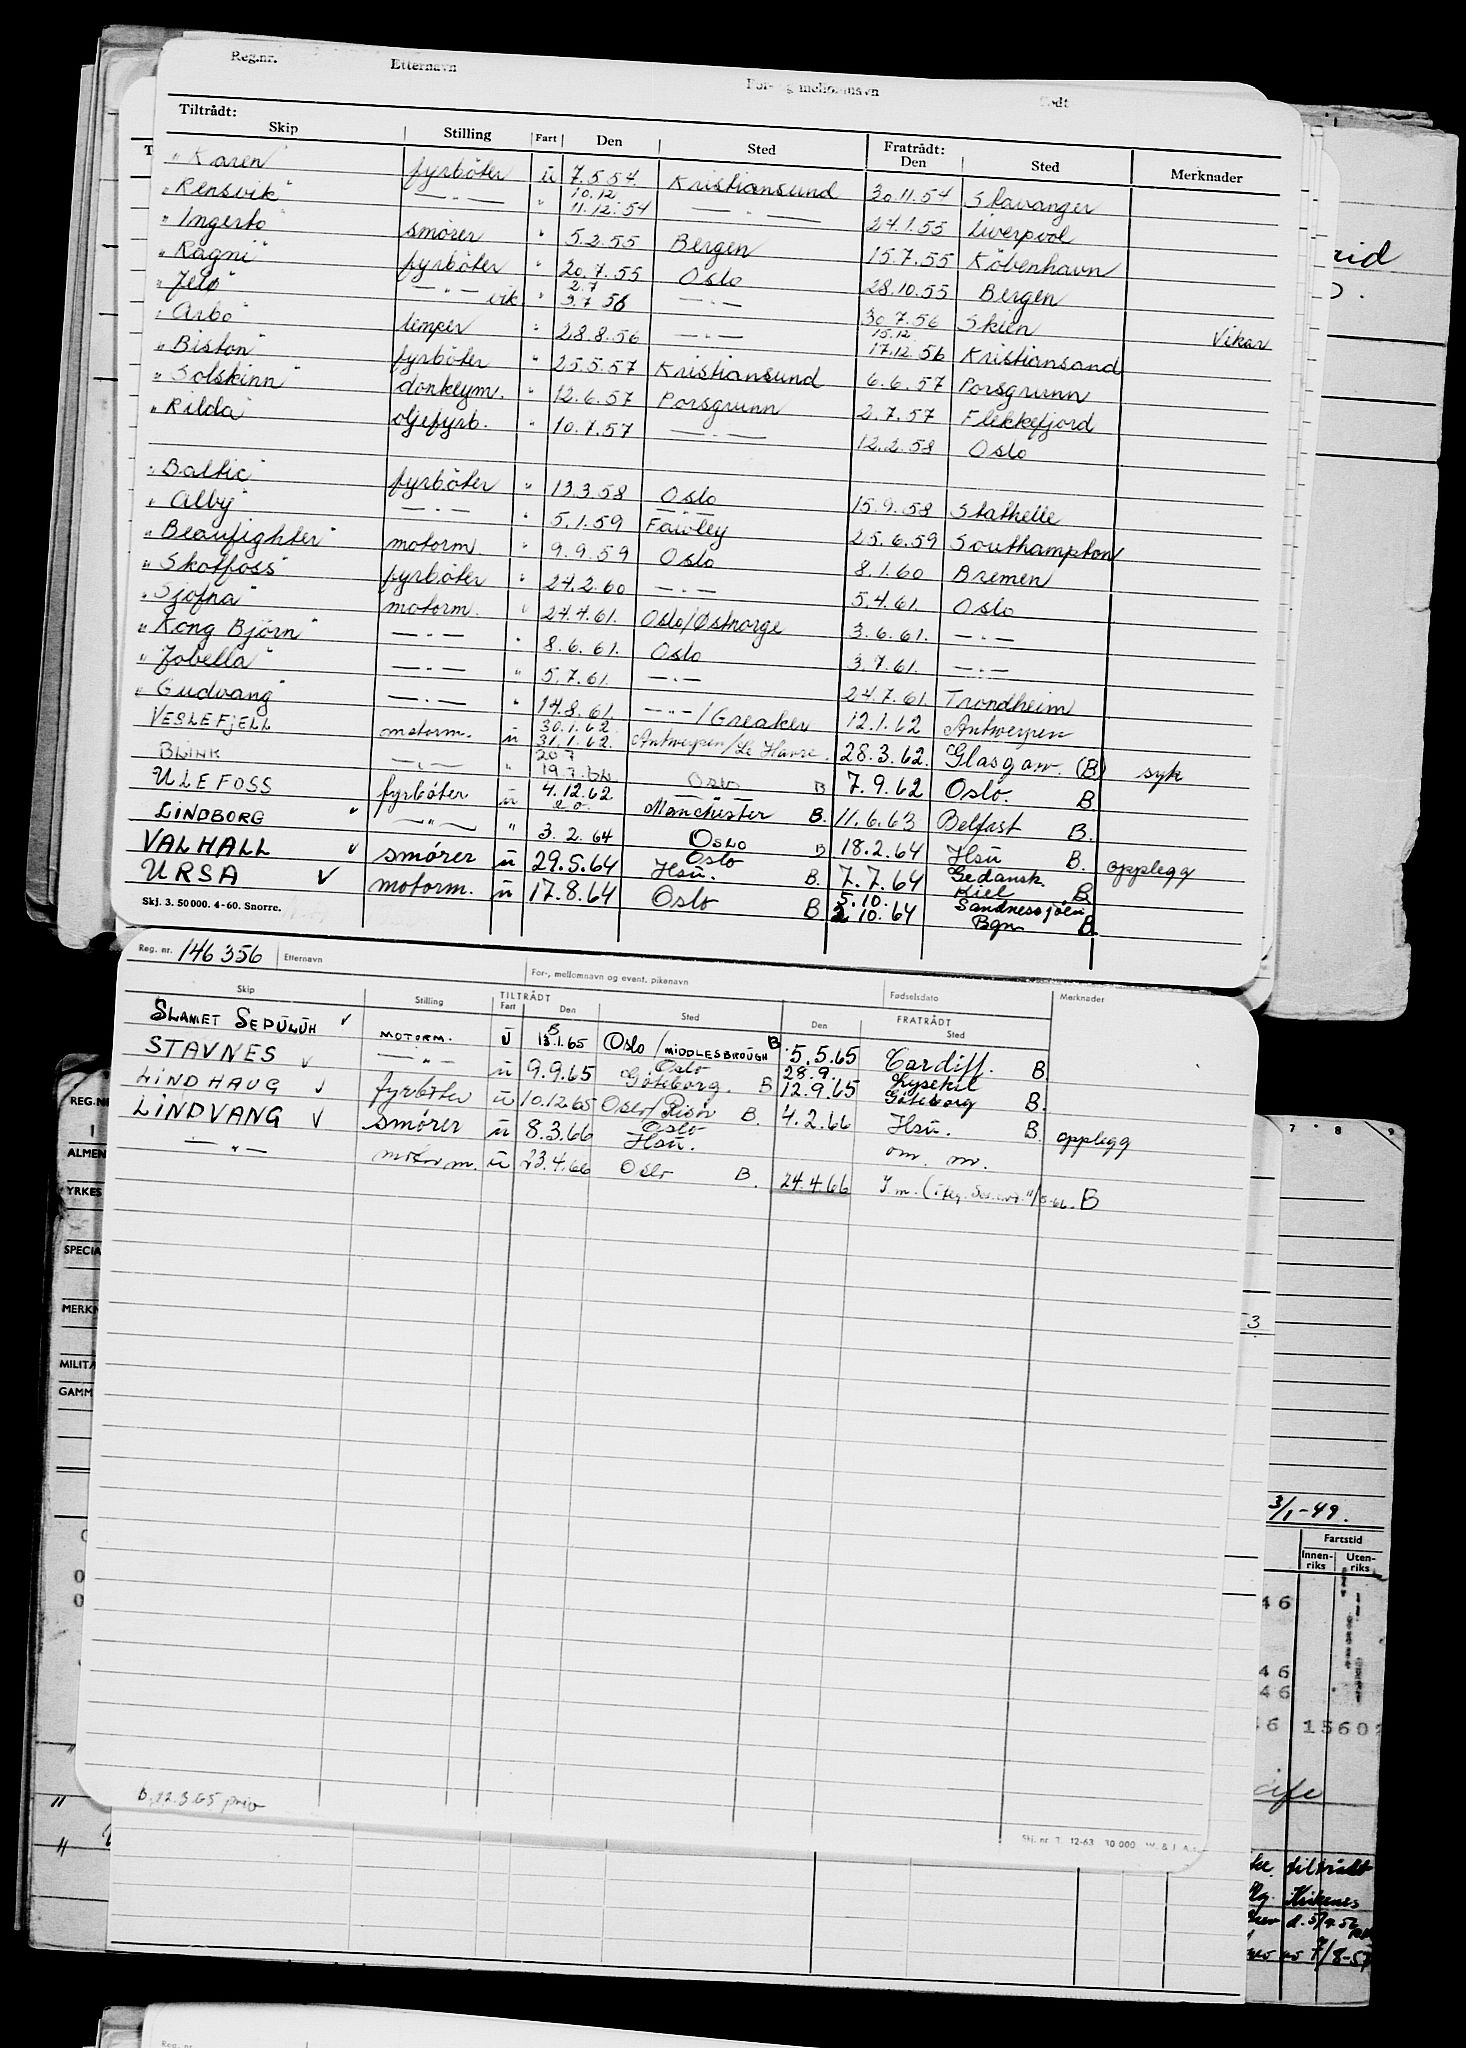 Reg.nr. Etternavn For- og mellomnavn Født
Tiltrådt: Fratrådt:
Skip Stilling Fart Den Sted Den Sted Merknader
"Karen" fyrböter ü 7.5.54 Kristiansund 30.11.54 Stavanger
"Rensvik" — " — " 10.12 11.12.54 — " — 24.1.55 Liverpool
"Ingerto" smörer " 5.2.55 Bergen 15.7.55 Köbenhavn
"Ragni" fyrböter " 20.7.55 Oslo 28.10.55 Bergen
"Jelö" — " — vik. " 2.7 3.7 56 — " — 30.7.56 Skien Vikar
"Arbo" limper " 28.8.56 — " — 15.12 17.12.56 Kristiansand
"Biston" fyrböter " 25.5.57 Kristiansund 6.6.57 Porsgrunn
"Solskinn" donkeym. " 12.6.57 Porsgrunn 2.7.57 Flekkefjord
"Rilda" oljefyrb. " 10.7.57 — " — 12.2.58 Oslo
"Baltic" fyrböter " 13.3.58 Oslo 15.9.58 Stathelle
"Alby" — " — " 5.1.59 Fawley 25.6.59 Southampton
"Beaufighter" motorm. " 9.9.59 Oslo 8.1.60 Bremen
"Skotfoss" fyrböter " 24.2.60 — " — 5.4.61. Oslo
"Sjofna" motorm. " 24.4.61. Oslo/Östnorge 3.6.61. — " —
"Kong Björn" — " — " 8.6.61. Oslo 3.7.61. — " —
"Jobella" — " — " 5.7.61. — " — 24.7.61. Trondheim
"Gudvang" — " — " 14.8.61. — " — /Greaker 12.1.62 Antwerpen
VESLEFJELL motorm. ü 30.1.62. 31.1.62. Antwerpen/Le Havre. 28.3.62. Glasgow. (B) syk
BLINK — " — " 20 7 19.7.62 Oslo B 7.9.62 Oslo. B.
ULEFOSS fyrböter ü 4.12.62 Manchester B. 11.6.63 Belfast B.
LINDBORG — " — " 3.2.64 Oslo B 18.2.64 Hsü B. opplegg
VALHALL smörer ü 29.5.64 Oslo Hsü. B. 7.7.64 Gedansk. Kiel B
URSA motorm. ü 17.8.64 Oslo B 5.10. 2 10.64 Sandnessjöen Bgn B.
Skj. 3. 50 000. 4-60. Snorre.
Reg. nr. 146356 Etternavn For-, mellomnavn og event. pikenavn Fødselsdato Merknader
TILTRÅDT FRATRÅDT
Skip Stilling Fart Den Sted Den Sted
SLAMET SEPULUH motorm. ü B 13.1.65 Oslo/MIDDLESBROUGH B. 5.5.65 Cardiff. B.
STAVNES — " — ü 9.9.65 Oslo Göteborg. B 28.9. 12.9.65 Lysekil Göteborg B.
LINDHAUG fyrböter ü 10.12.65 Oslo/Risör B. 4.2.66 Hsü. B. opplegg
LINDVANG smörer ü 8.3.66 Oslo Hsü. om. m.
— " — motorm. ü 23.4.66 Oslo B. 24.4.66 B
B. 12.3.65 priv
Skj. nr. 3. 12-63 30 000
REG.NR
ALMEN
YRKES
SPECIA
MERKN
MILITÆ
GAMM
7 8 9
3
3/1-49.
Fartstid
Innenriks Utenriks
46
46
46
1560
tiltrådt
Kirkenes
7/8-57
Reg. nr.